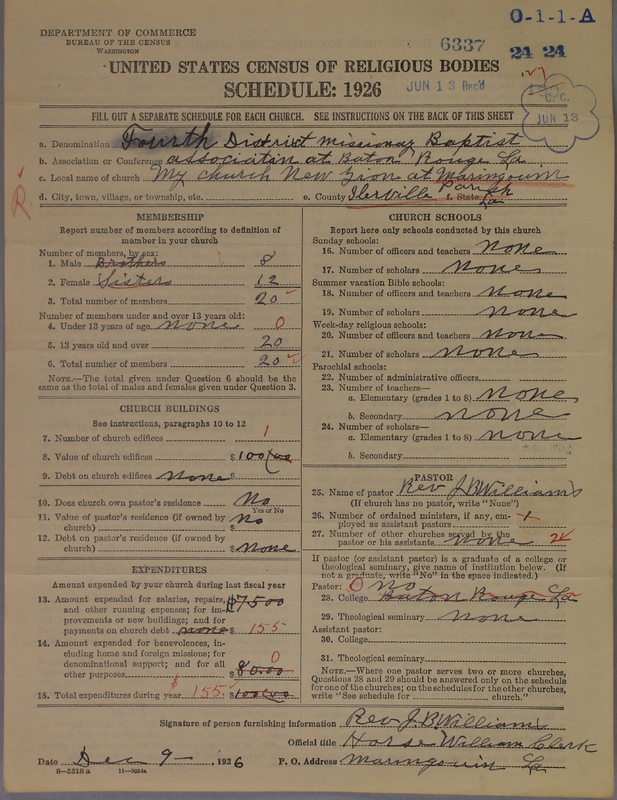 O-1-1-A
DEPARTMENT OF COMMERCE
BUREAU OF THE CENSUS
WASHINGTON
6337
24 24
UNITED STATES CENSUS OF RELIGIOUS BODIES
SCHEDULE: 1926
JUN 13 Rec'd
C. C.
JUN 13
FILL OUT A SEPARATE SCHEDULE FOR EACH CHURCH. SEE INSTRUCTIONS ON THE BACK OF THIS SHEET
a. Denomination Fourth District missionary Baptist
b. Association or Conference association at Baton Rouge La
c. Local name of church My church New Zion at Maringouin
d. City, town, village, or township, etc. e. County Iberville Parish f. State La
R
MEMBERSHIP
Report number of members according to definition of
member in your church
Number of members, by sex:
1. Male Brothers 8
2. Female Sisters 12
3. Total number of members 20
Number of members under and over 13 years old:
4. Under 13 years of age none 0
5. 13 years old and over 20
6. Total number of members 20
NOTE.—The total given under Question 6 should be the
same as the total of males and females given under Question 3.
CHURCH BUILDINGS
See instructions, paragraphs 10 to 12
7. Number of church edifices 1
8. Value of church edifices $100.00
9. Debt on church edifices None $
10. Does church own pastor's residence No
Yes or No
11. Value of pastor's residence (if owned by
church) $ No
12. Debt on pastor's residence (if owned by
church) $ None
EXPENDITURES
Amount expended by your church during last fiscal year
13. Amount expended for salaries, repairs,
and other running expenses; for im-
provements or new buildings; and for
payments on church debt none $ 155
$7500
14. Amount expended for benevolences, in-
cluding home and foreign missions; for
denominational support; and for all
other purposes $ 80.00
0
15. Total expenditures during year $ 155 $100.00
CHURCH SCHOOLS
Report here only schools conducted by this church
Sunday schools:
16. Number of officers and teachers none
17. Number of scholars none
Summer vacation Bible schools:
18. Number of officers and teachers none
19. Number of scholars none
Week-day religious schools:
20. Number of officers and teachers none
21. Number of scholars none
Parochial schools:
22. Number of administrative officers
23. Number of teachers—
a. Elementary (grades 1 to 8) none
b. Secondary none
24. Number of scholars—
a. Elementary (grades 1 to 8) none
b. Secondary
PASTOR
25. Name of pastor Rev J.B Williams
(If church has no pastor, write "None")
26. Number of ordained ministers, if any, em-
ployed as assistant pastors
27. Number of other churches served by the
pastor or his assistants none
If pastor (or assistant pastor) is a graduate of a college or
theological seminary, give name of institution below. (If
not a graduate, write "No" in the space indicated.)
Pastor: 0 No
28. College Baton Rouge La
29. Theological seminary None
Assistant pastor:
30. College
31. Theological seminary
NOTE.—Where one pastor serves two or more churches,
Questions 28 and 29 should be answered only on the schedule
for one of the churches; on the schedules for the other churches,
write "See schedule for church."
Signature of person furnishing information Rev. J.B Williams
Official title Horse William Clerk
Date Dec 9 -, 1926 P. O. Address Maringouin La
8-5518a 11-9064a